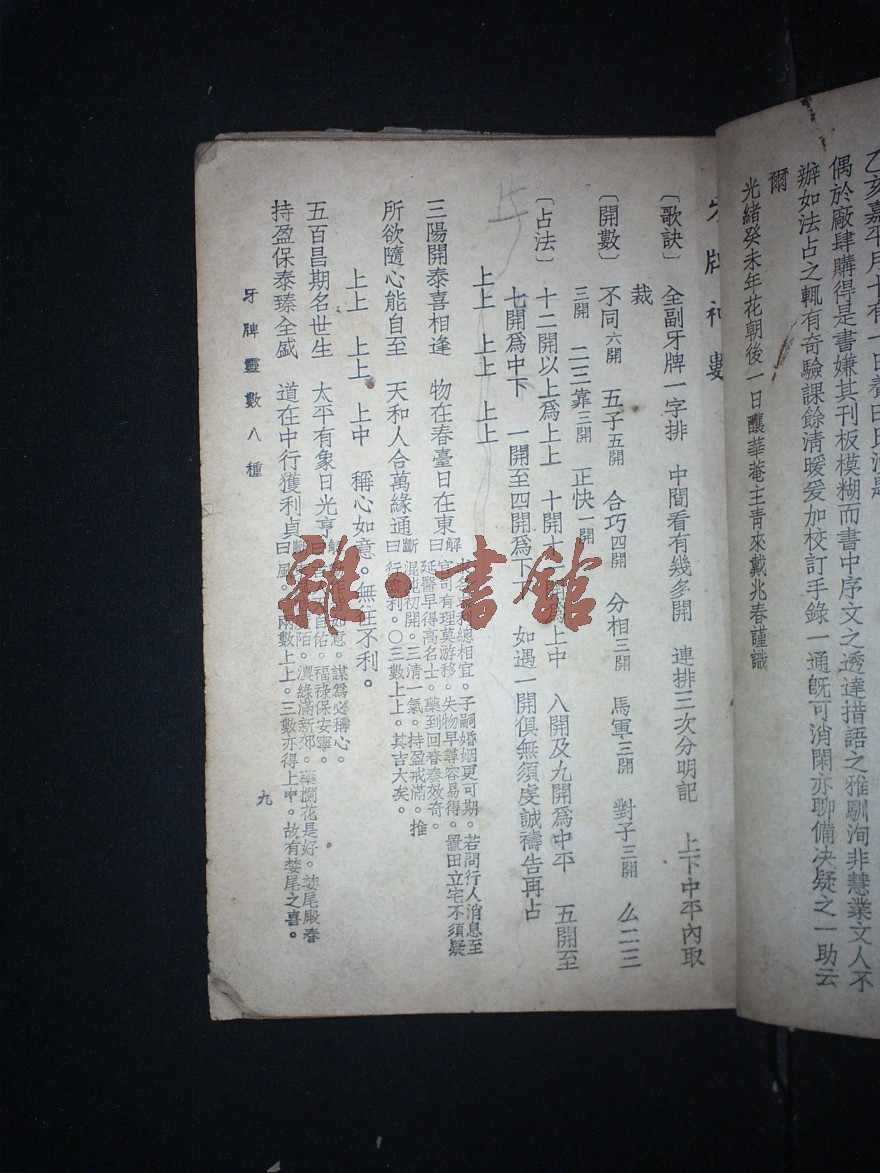 乙亥嘉平月十有一日
偶於廠肆購得是書嫌其刊板模糊而書中序文之透達措語之雅馴洵非慧業文人不
辦如法占之輒有奇驗課餘清暖爰加校訂手錄一通旣可消閑亦聊備決疑之一助云
爾
光緒癸未年花朝後一日釀華菴主靑來戴兆春謹識
牌 數
〔歌訣〕 全副牙牌一字排 中間看有幾多開 連排三次分明記 上下中平內取
裁
〔開數〕 不同六開 五子五開 合巧四開 分相三開 馬軍三開 對子三開 么二三
三開 二三靠三開 正快一開
〔占法〕 十二開以上爲上上 十開十 上中 八開及九開爲中平 五開至
七開爲中下 一開至四開爲下 如遇一開俱無須虔誠禱告再占
上上 上上 上上
三陽開泰喜相逢 物在春臺日在東
解曰 總相宜。子嗣婚姻更可期。若問行人消息至
官司有理莫游移。失物早尋容易得。置田立宅不須疑
延醫早得高名士。藥到回春奏效奇。
所欲隨心能自至 天和人合萬緣通
斷曰 混沌初開。三淸一氣。持盈戒滿。推
行盡利。〇三數上上。其吉大矣。
上上 上上 上中 稱心如意。無往不利。
五百昌期名世生 太平有象日光亨
解曰 如意。謀爲必稱心。
自佑。福祿保安寧。
持盈保泰臻全盛 道在中行獲利貞
斷曰 陌。濃綠滿新郊。藥欄花是好。婪尾殿春
風。〇兩數上上。三數亦得上中。故有婪尾之喜。
牙牌靈數八種
九
雜·書館